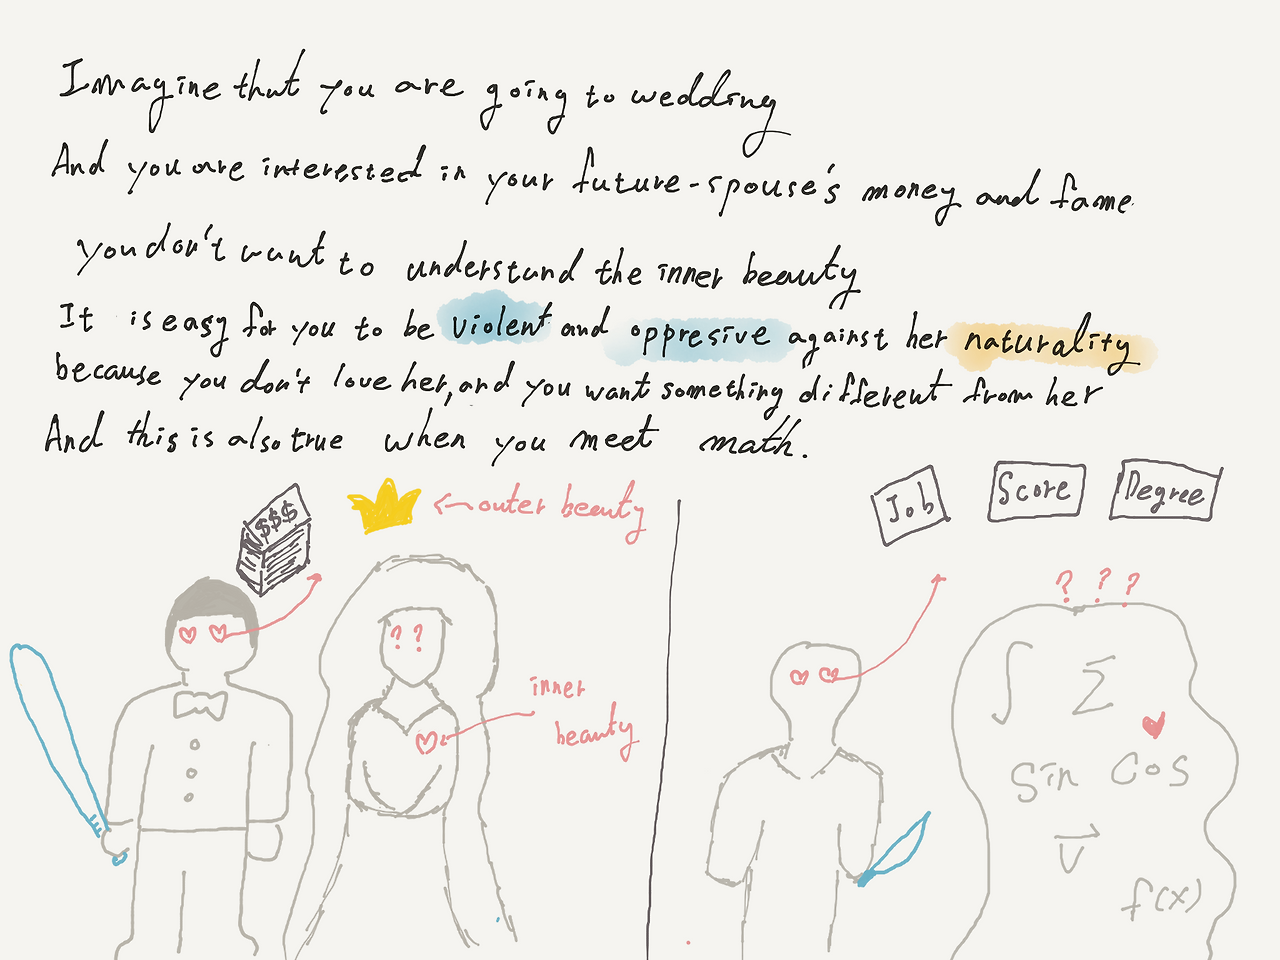 Imagine that you are going to wedding
And you are interested in your future-spouse's money and fame.
you don't want to understand the inner beauty
It is easy for you to be violent and oppresive against her naturality
because you don't love her, and you want something different from her
And this is also true when you meet math.
$$$
<-outer beauty
Job
Score
Degree
? ?
inner
beauty
? ? ?
∫ Σ
Sin Cos
V
f(x)